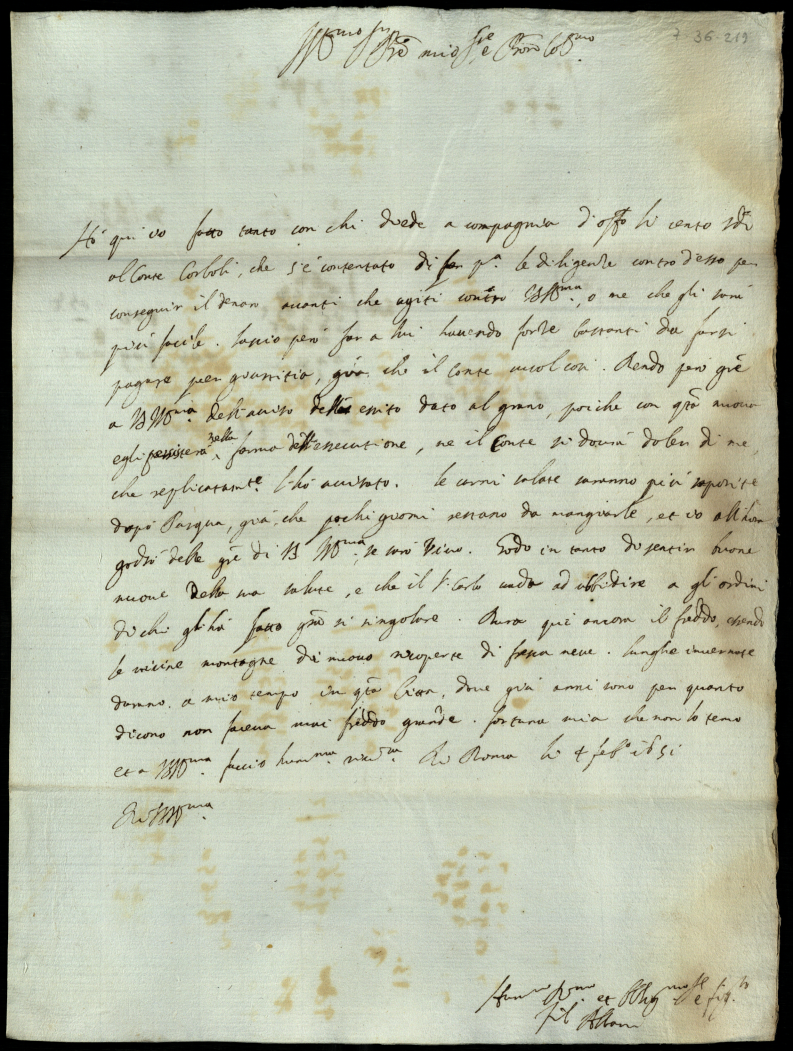 7-36-219
Ill.mo Sig.re mio Sig.re e P.ron Col.mo
Hò qui io fatto tanto con chi diede a compagnia d'off.o li cento sdi
al Conte Corboli, che s'è contentato di far p.a le diligenze contro d'esso per
conseguir il denaro avanti che agiti contro V.S. Ill.ma, o me che gli sarà
più facile. Lascio però far a lui havendo forze bastanti da farsi
pagare per giustitia, già che il Conte vuol così. Rendo però gr.e
a V.S. Ill.ma dell'aviso dell'esito dato al grano, poiche con q.ta nuova
egli persisterà nella forma dell'essecutione, ne il Conte si dovrà doler di me
che replicatam.te l'hò avisato. Le carni salate saranno più saporite
dopò Pasqua, già che pochi giorni restano da mangiarle, et io all'hora
godrò delle gr.e di V.S. Ill.ma, se sarò vivo. Godo in tanto di sentir buone
nuove della sua salute, e che il S.r Carlo vada ad ubbidire a gli ordini
di chi gli hà fatto gr.a si singolare. Dura qui ancora il freddo, essendo
le vicine montagne di nuovo ricoperte di fresca neve. Lunghe invernate
danno a mio tempo in q.ta Città, dove già anni sono per quanto
dicono non faceva mai freddo grande. Fortuna mia che non lo temo
et a V.S. Ill.ma faccio hum.ma riv.za. Di Roma li 4 feb.o 1651
Di V.S. Ill.ma
Hum.mo Dev.mo et Obblig.mo Se.re